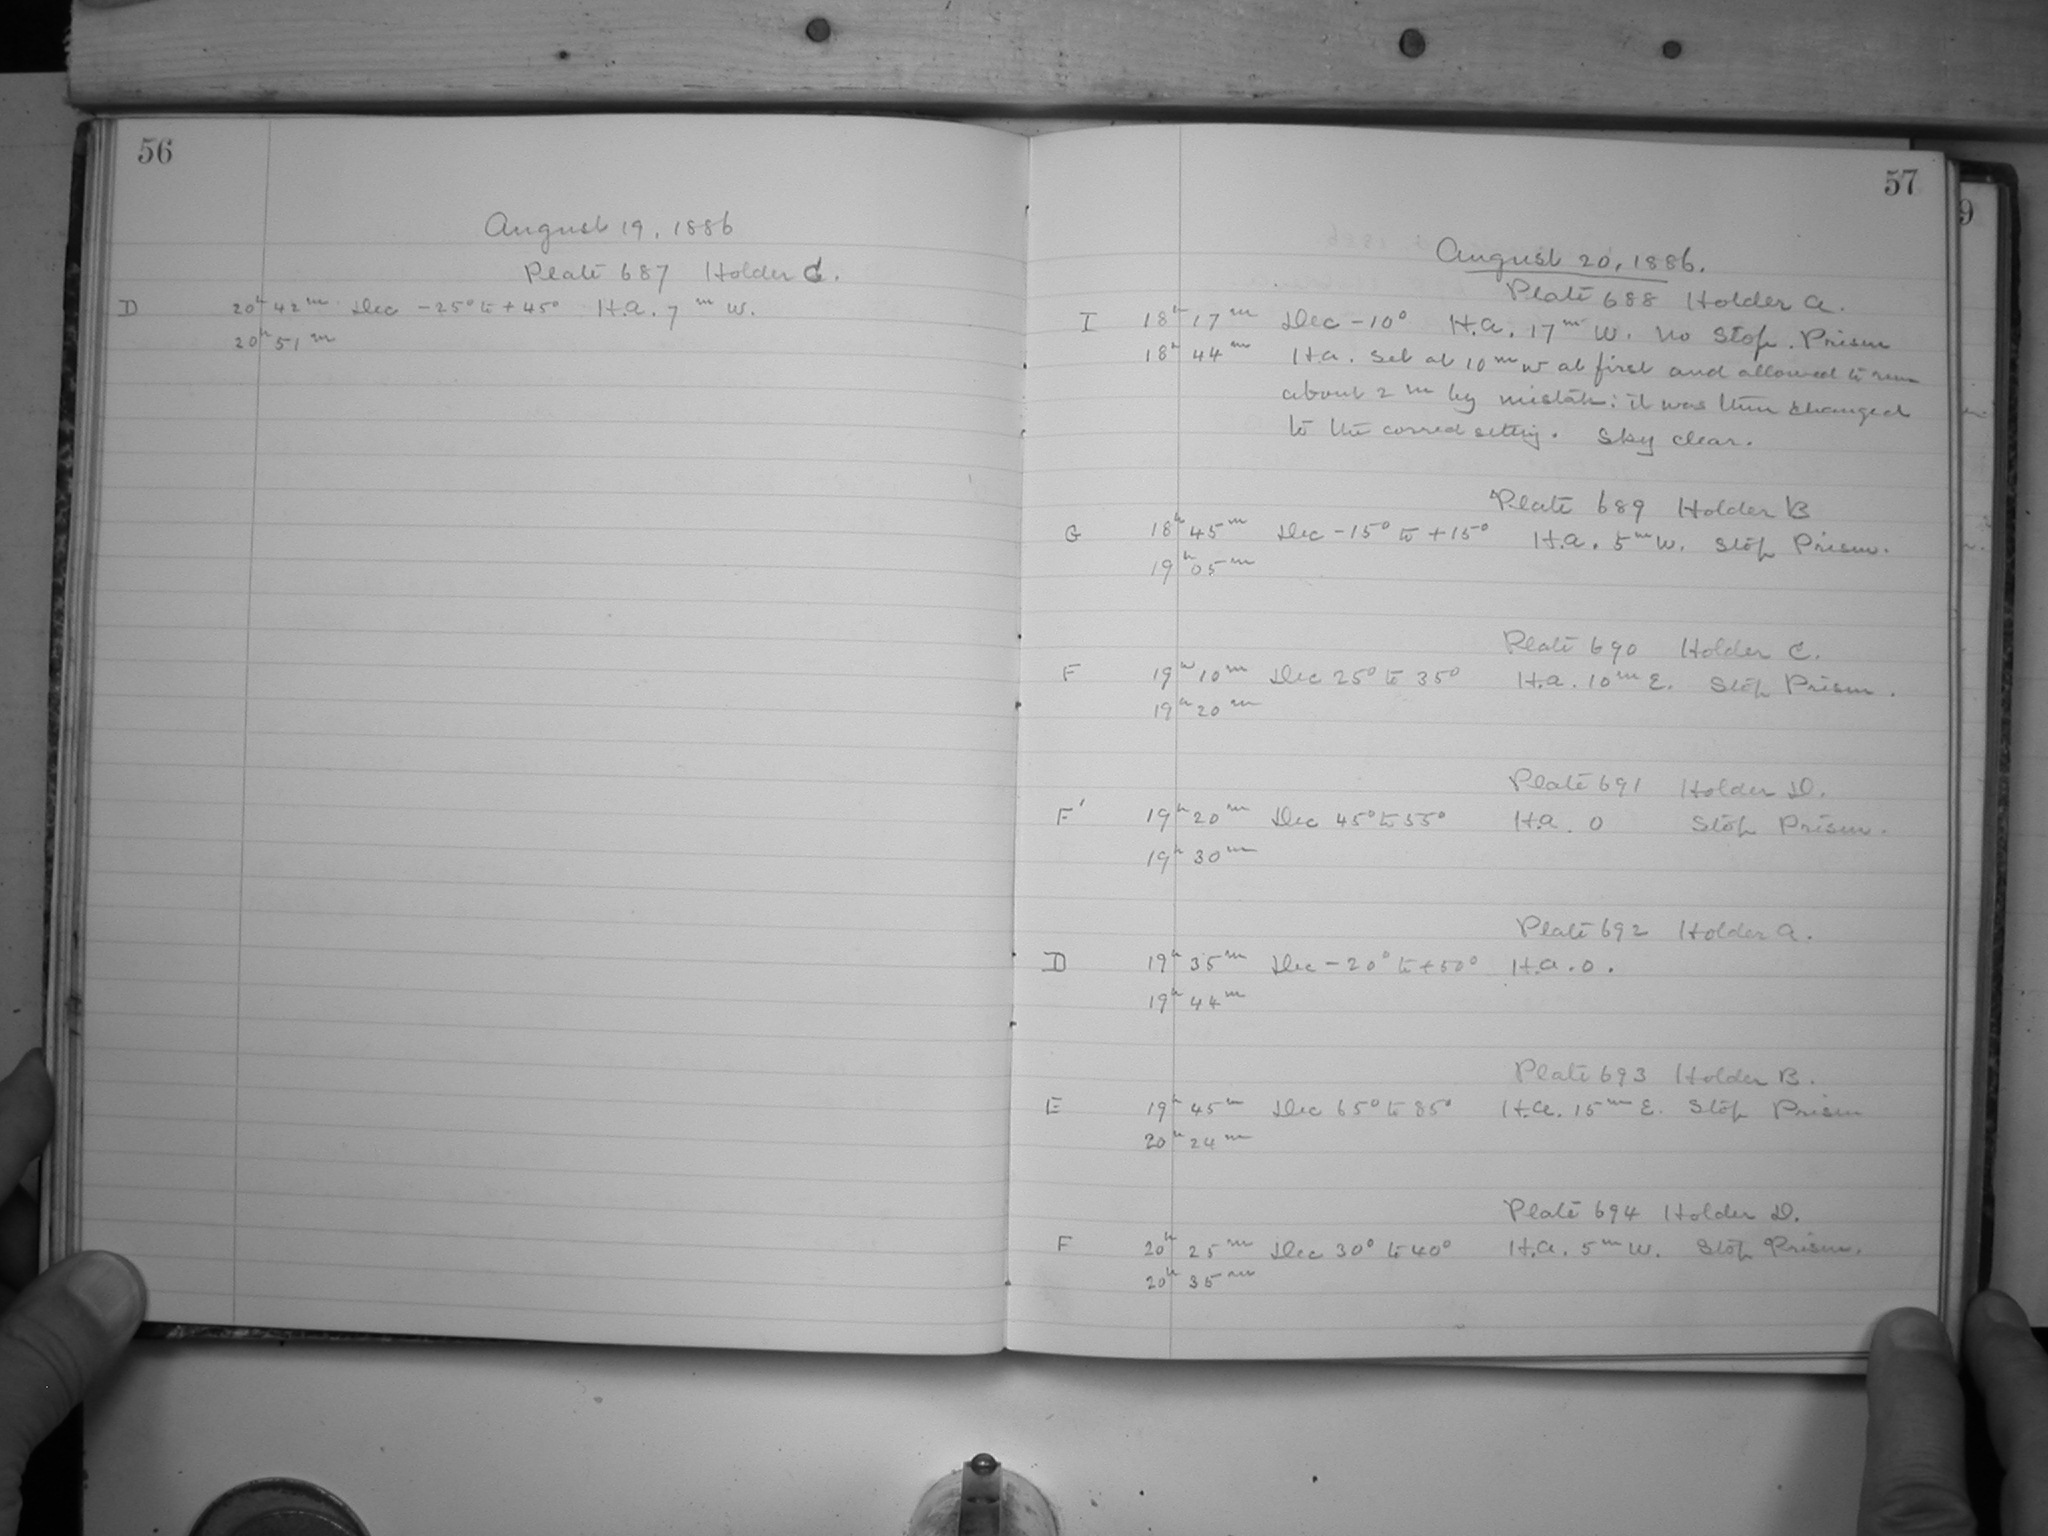 56
August 19, 1886
Plate 687 Holder C.
D 20h 42m Dec -25° to +45° H.A. 7m W.
20h 51m
57
9
August 20, 1886.
Plate 688 Holder A.
I 18h 17m Dec -10° H.A. 17m W. No Stop. Prism
18h 44m H.A. set at 10m W at first and allowed to run
about 2m by mistake: it was then changed
to the correct setting. Sky clear.
Plate 689 Holder B
G 18h 45m Dec -15° to +15° H.A. 5m W. Stop Prism.
19h 05m
Plate 690 Holder C.
F 19h 10m Dec 25° to 35° H.A. 10m E. Stop Prism.
19h 20m
Plate 691 Holder D.
F' 19h 20m Dec 45° to 55° H.A. 0 Stop Prism.
19h 30m
Plate 692 Holder A.
D 19h 35m Dec -20° to +50° H.A. 0.
19h 44m
Plate 693 Holder B.
E 19h 45m Dec 65° to 85° H.A. 15m E. Stop Prism
20h 24m
Plate 694 Holder D.
F 20h 25m Dec 30° to 40° H.A. 5m W. Stop Prism.
20h 35m